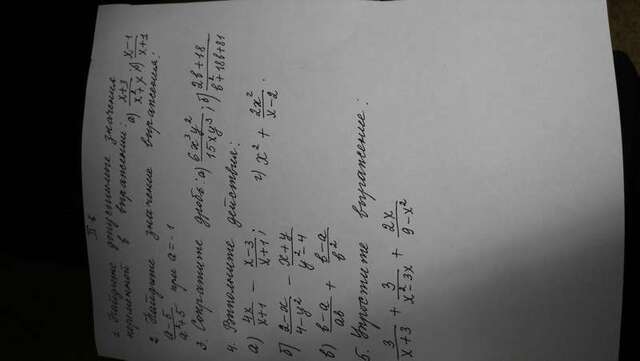 II в
1. Найдите допустимые значения
переменной в выражении: а) \frac{x+3}{x^2+x} б) \frac{x-1}{x+1}
2 Найдите значение выражения:
\frac{a-5}{a^2+5} при a=-1
3. Сократите дробь: а) \frac{6x^3y^2}{15xy^3}; б) \frac{2b+18}{b^2+18b+81}
4. Выполните действия:
а) \frac{4x}{x+1} - \frac{x-3}{x+1}; г) x^2 + \frac{2x^2}{x-2}.
б) \frac{2-x}{4-y^2} - \frac{x+y}{y^2-4}
в) \frac{b-a}{ab} + \frac{b-a}{b^2}
5. Упростите выражение:
\frac{3}{x+3} + \frac{3}{x^2-3x} + \frac{2x}{9-x^2}